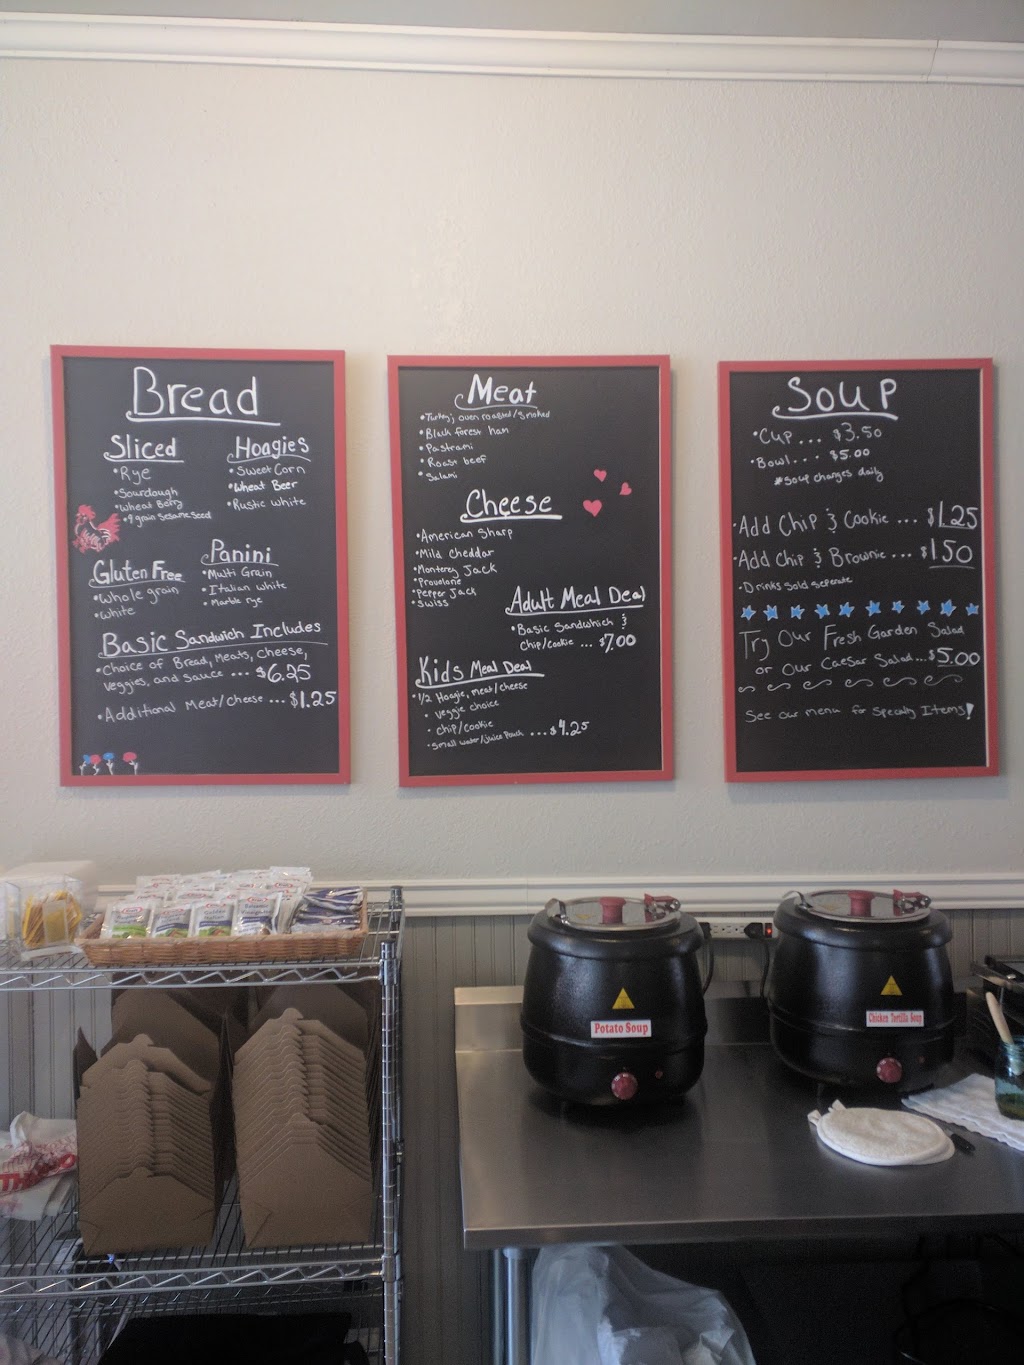 Bread
Sliced
• Rye
• Sourdough
• Wheat Berry
• 9 grain Sesame Seed
Hoagies
• Sweet Corn
• Wheat Beer
• Rustic white
Gluten Free
• Whole grain
• White
Panini
• Multi Grain
• Italian white
• Marble rye
Basic Sandwich Includes
• Choice of Bread, Meats, Cheese,
Veggies, and Sauce ... $6.25
• Additional Meat/cheese ... $1.25
Meat
• Turkey; oven roasted/smoked
• Black forest ham
• Pastrami
• Roast beef
• Salami
Cheese
• American Sharp
• Mild Cheddar
• Monterey Jack
• Provolone
• Pepper Jack
• Swiss
Adult Meal Deal
• Basic Sandwhich &
chip/cookie ... $7.00
Kids Meal Deal
• 1/2 Hoagie, meat/cheese
• veggie choice
• chip/cookie
• Small water/juice pouch ... $4.25
Soup
• Cup ... $3.50
• Bowl ... $5.00
*Soup changes daily
• Add Chip & Cookie ... $1.25
• Add Chip & Brownie ... $1.50
• Drinks sold seperate
Try Our Fresh Garden Salad
or Our Caesar Salad ... $5.00
See our menu for Specialty Items!
Potato Soup
Chicken Tortilla Soup